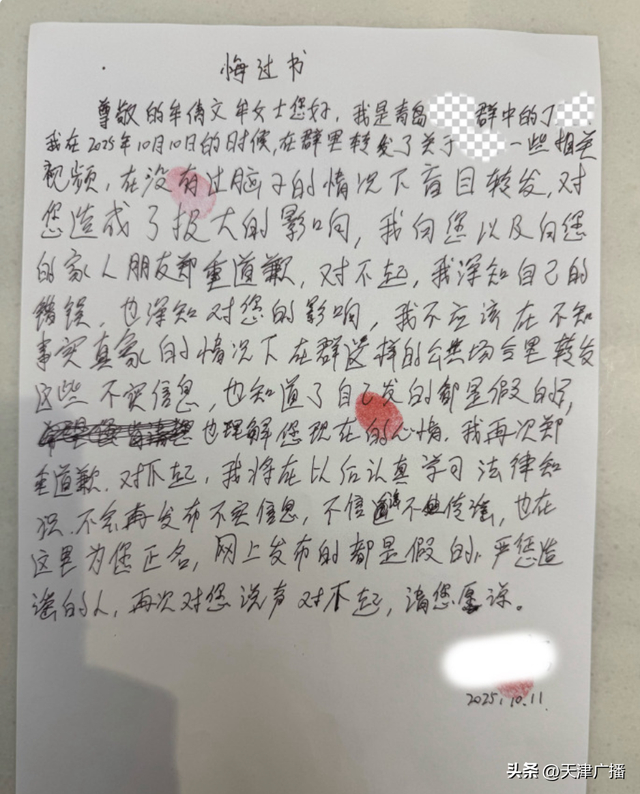 悔过书
尊敬的牟倩文牟女士您好，我是青岛 群中的丁
我在2025年10月10日的时候，在群里转发了关于 一些相关
视频，在没有过脑子的情况下盲目转发，对
您造成了极大的影响，我向您以及向您
的家人朋友郑重道歉，对不起，我深知自己的
错误，也深知对您的影响，我不应该在不知
事实真象的情况下在群这样的公共场合里转发
这些不实信息，也知道了自己发的都是假的，
也理解您现在的心情，我再次郑
重道歉，对不起，我将在以后认真学习法律知
识，不会再发布不实信息，不信谣不传谣，也在
这里为您正名，网上发布的都是假的，严惩造
谣的人，再次对您说声对不起，请您原谅。
2025.10.11
头条@天津广播